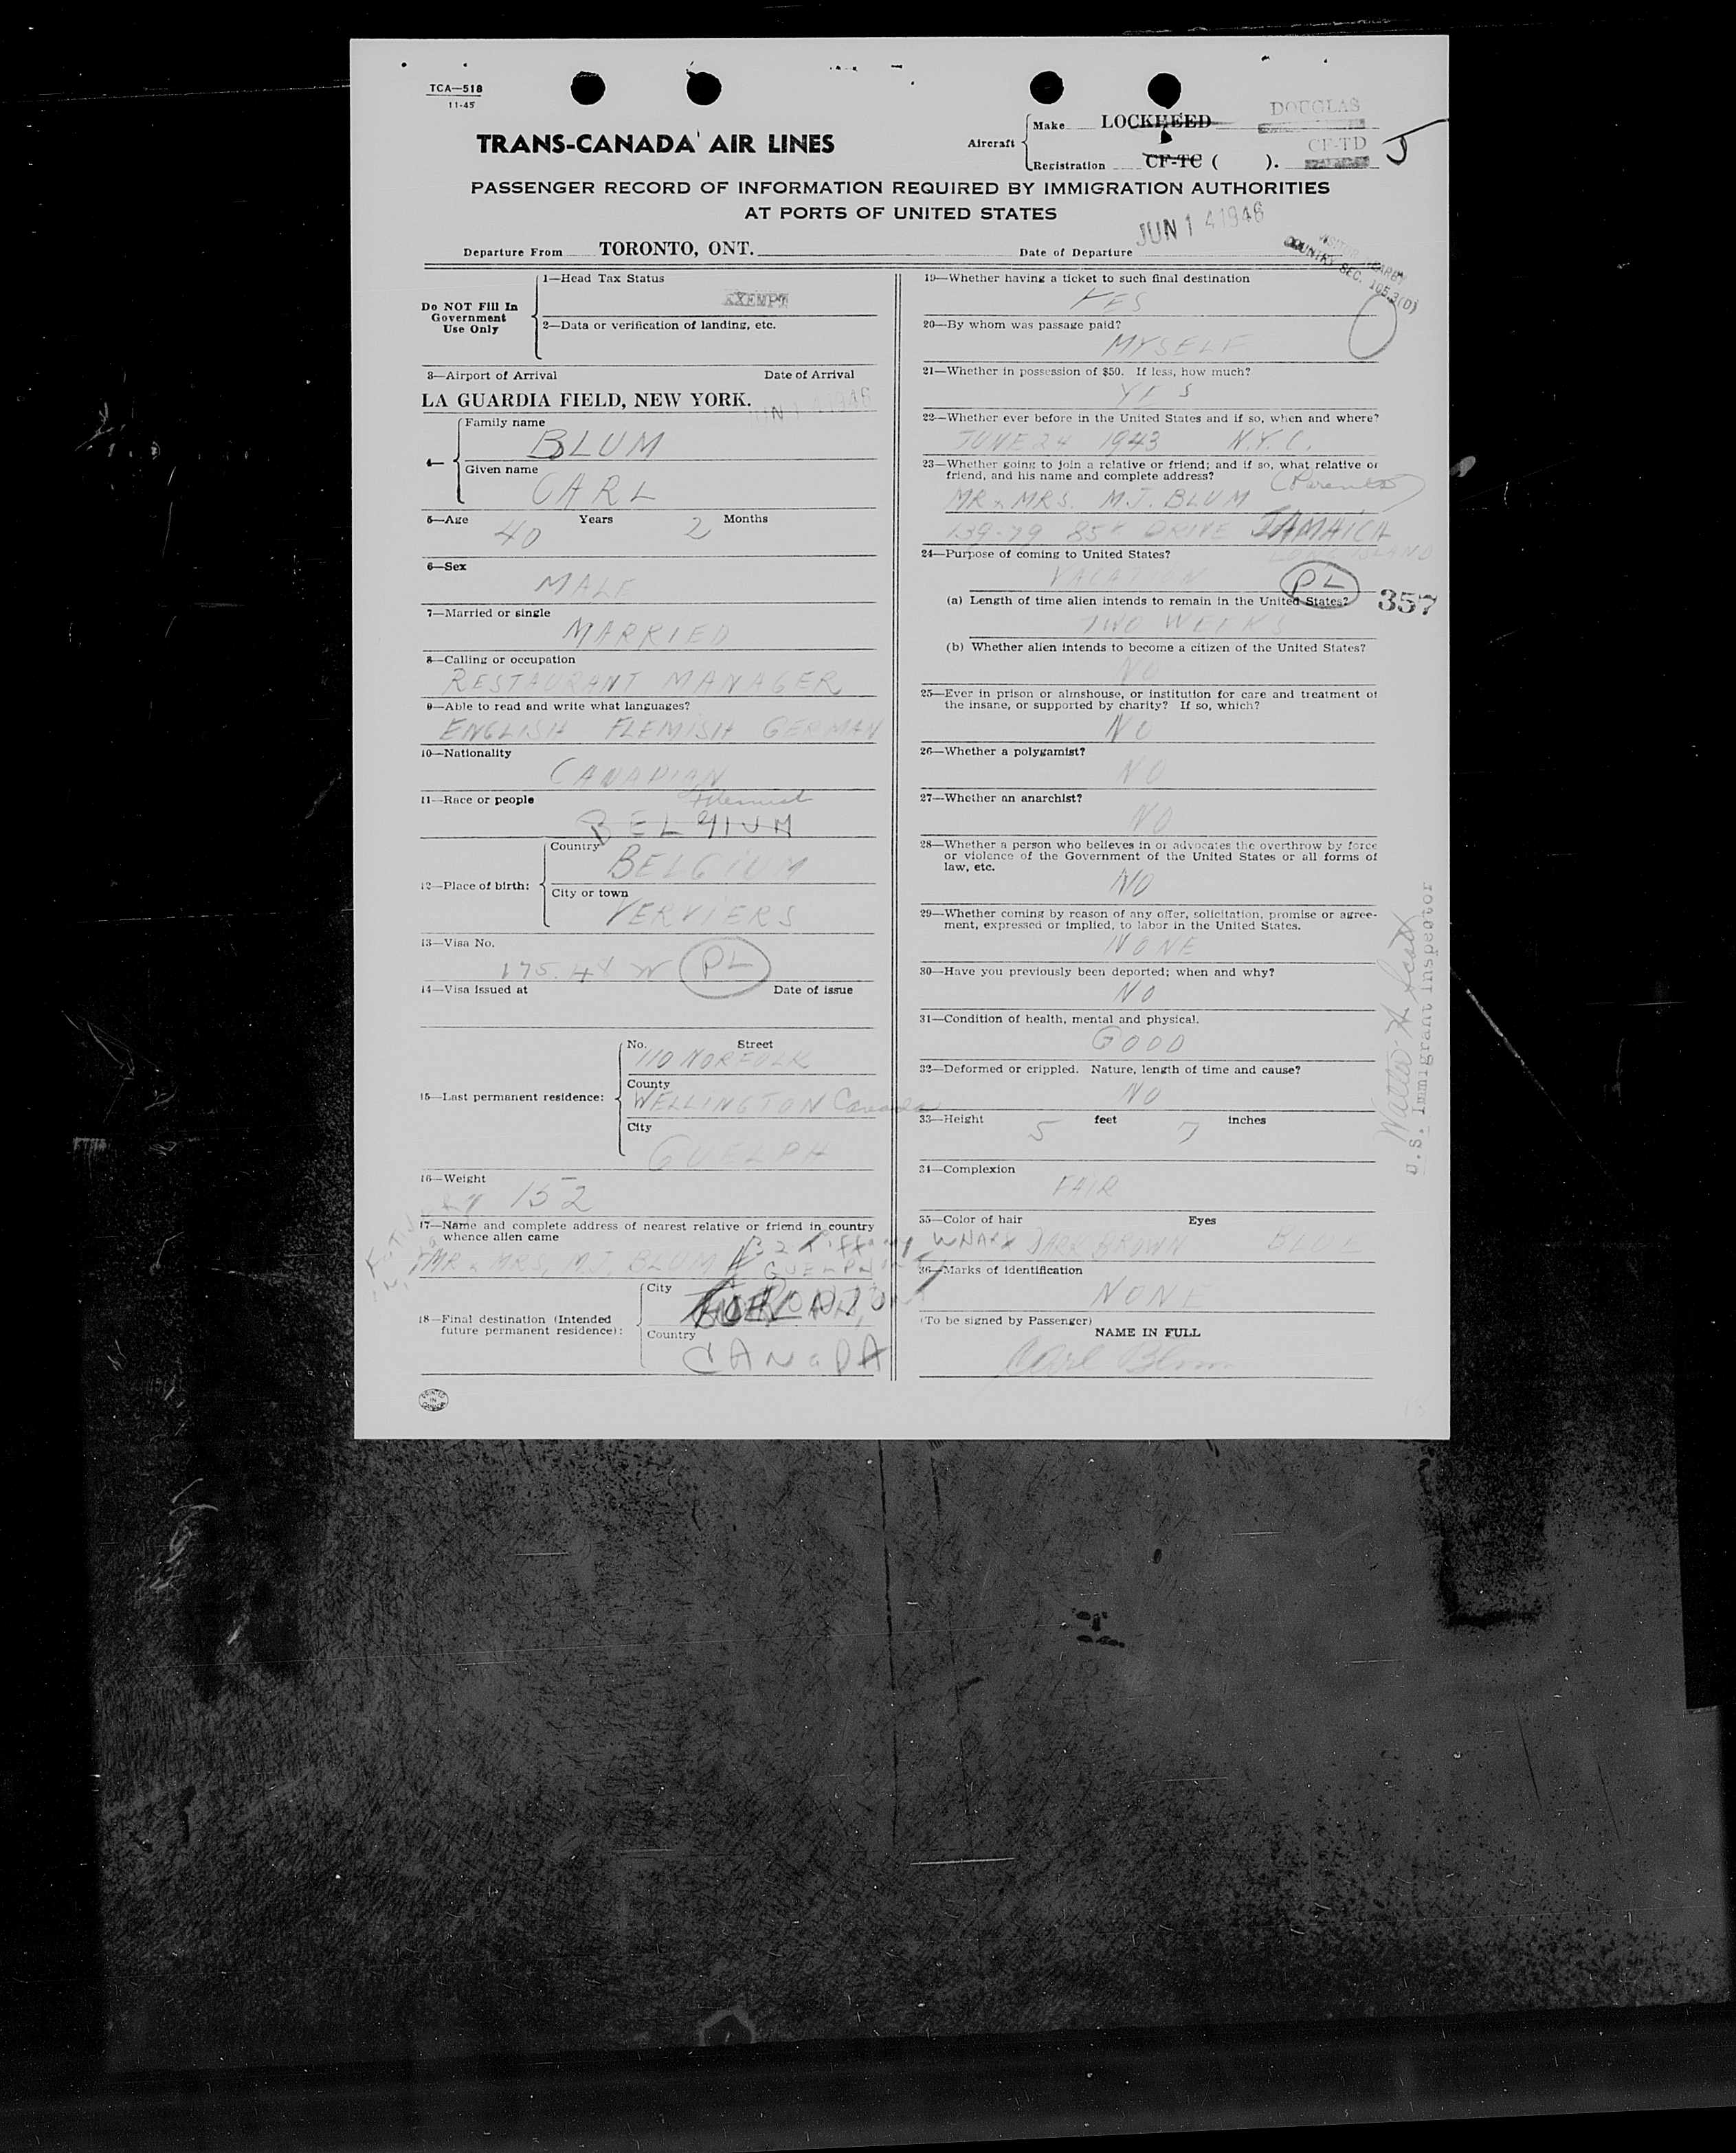 TCA—518
11-45
TRANS-CANADA AIR LINES
Aircraft
Make LOCKHEED DOUGLAS
Registration CF-TC ( ). CF-TD J
PASSENGER RECORD OF INFORMATION REQUIRED BY IMMIGRATION AUTHORITIES
AT PORTS OF UNITED STATES
Departure From TORONTO, ONT.
Date of Departure JUN 14 1946
COUNTRY SEC. 105.3(D)
Do NOT Fill In
Government
Use Only
1—Head Tax Status
EXEMPT
2—Data or verification of landing, etc.
3—Airport of Arrival Date of Arrival
LA GUARDIA FIELD, NEW YORK. JUN 14 1946
4—
Family name
BLUM
Given name
CARL
5—Age 40 Years 2 Months
6—Sex
MALE
7—Married or single
MARRIED
8—Calling or occupation
RESTAURANT MANAGER
9—Able to read and write what languages?
ENGLISH FLEMISH GERMAN
10—Nationality
CANADIAN
11—Race or people
Flemish
BELGIUM
12—Place of birth:
Country
BELGIUM
City or town
VERVIERS
13—Visa No.
PL
14—Visa issued at Date of issue
15—Last permanent residence:
No. Street
110 NORFOLK
County
WELLINGTON Canada
City
GUELPH
16—Weight
152
17—Name and complete address of nearest relative or friend in country
whence alien came
MR & MRS. M.J. BLUM 32 Tiffany
GUELPH
18—Final destination (Intended
future permanent residence):
City
Country
CANADA
PRINTED
IN
CANADA
19—Whether having a ticket to such final destination
YES
20—By whom was passage paid?
MYSELF
21—Whether in possession of $50. If less, how much?
YES
22—Whether ever before in the United States and if so, when and where?
JUNE 24 1943 N.Y.C.
23—Whether going to join a relative or friend; and if so, what relative or
friend, and his name and complete address?
(Parents)
MR & MRS. M.J. BLUM
139-79 85 DRIVE JAMAICA
LONG ISLAND
24—Purpose of coming to United States?
VACATION PL
357
(a) Length of time alien intends to remain in the United States?
TWO WEEKS
(b) Whether alien intends to become a citizen of the United States?
NO
25—Ever in prison or almshouse, or institution for care and treatment of
the insane, or supported by charity? If so, which?
NO
26—Whether a polygamist?
NO
27—Whether an anarchist?
NO
28—Whether a person who believes in or advocates the overthrow by force
or violence of the Government of the United States or all forms of
law, etc.
NO
29—Whether coming by reason of any offer, solicitation, promise or agree-
ment, expressed or implied, to labor in the United States.
NONE
30—Have you previously been deported; when and why?
NO
31—Condition of health, mental and physical.
GOOD
32—Deformed or crippled. Nature, length of time and cause?
NO
33—Height 5 feet 7 inches
34—Complexion
FAIR
35—Color of hair Eyes
DARK BROWN BLUE
36—Marks of identification
NONE
(To be signed by Passenger)
NAME IN FULL
Carl Blum
Walter H Scott
U.S. Immigrant Inspector